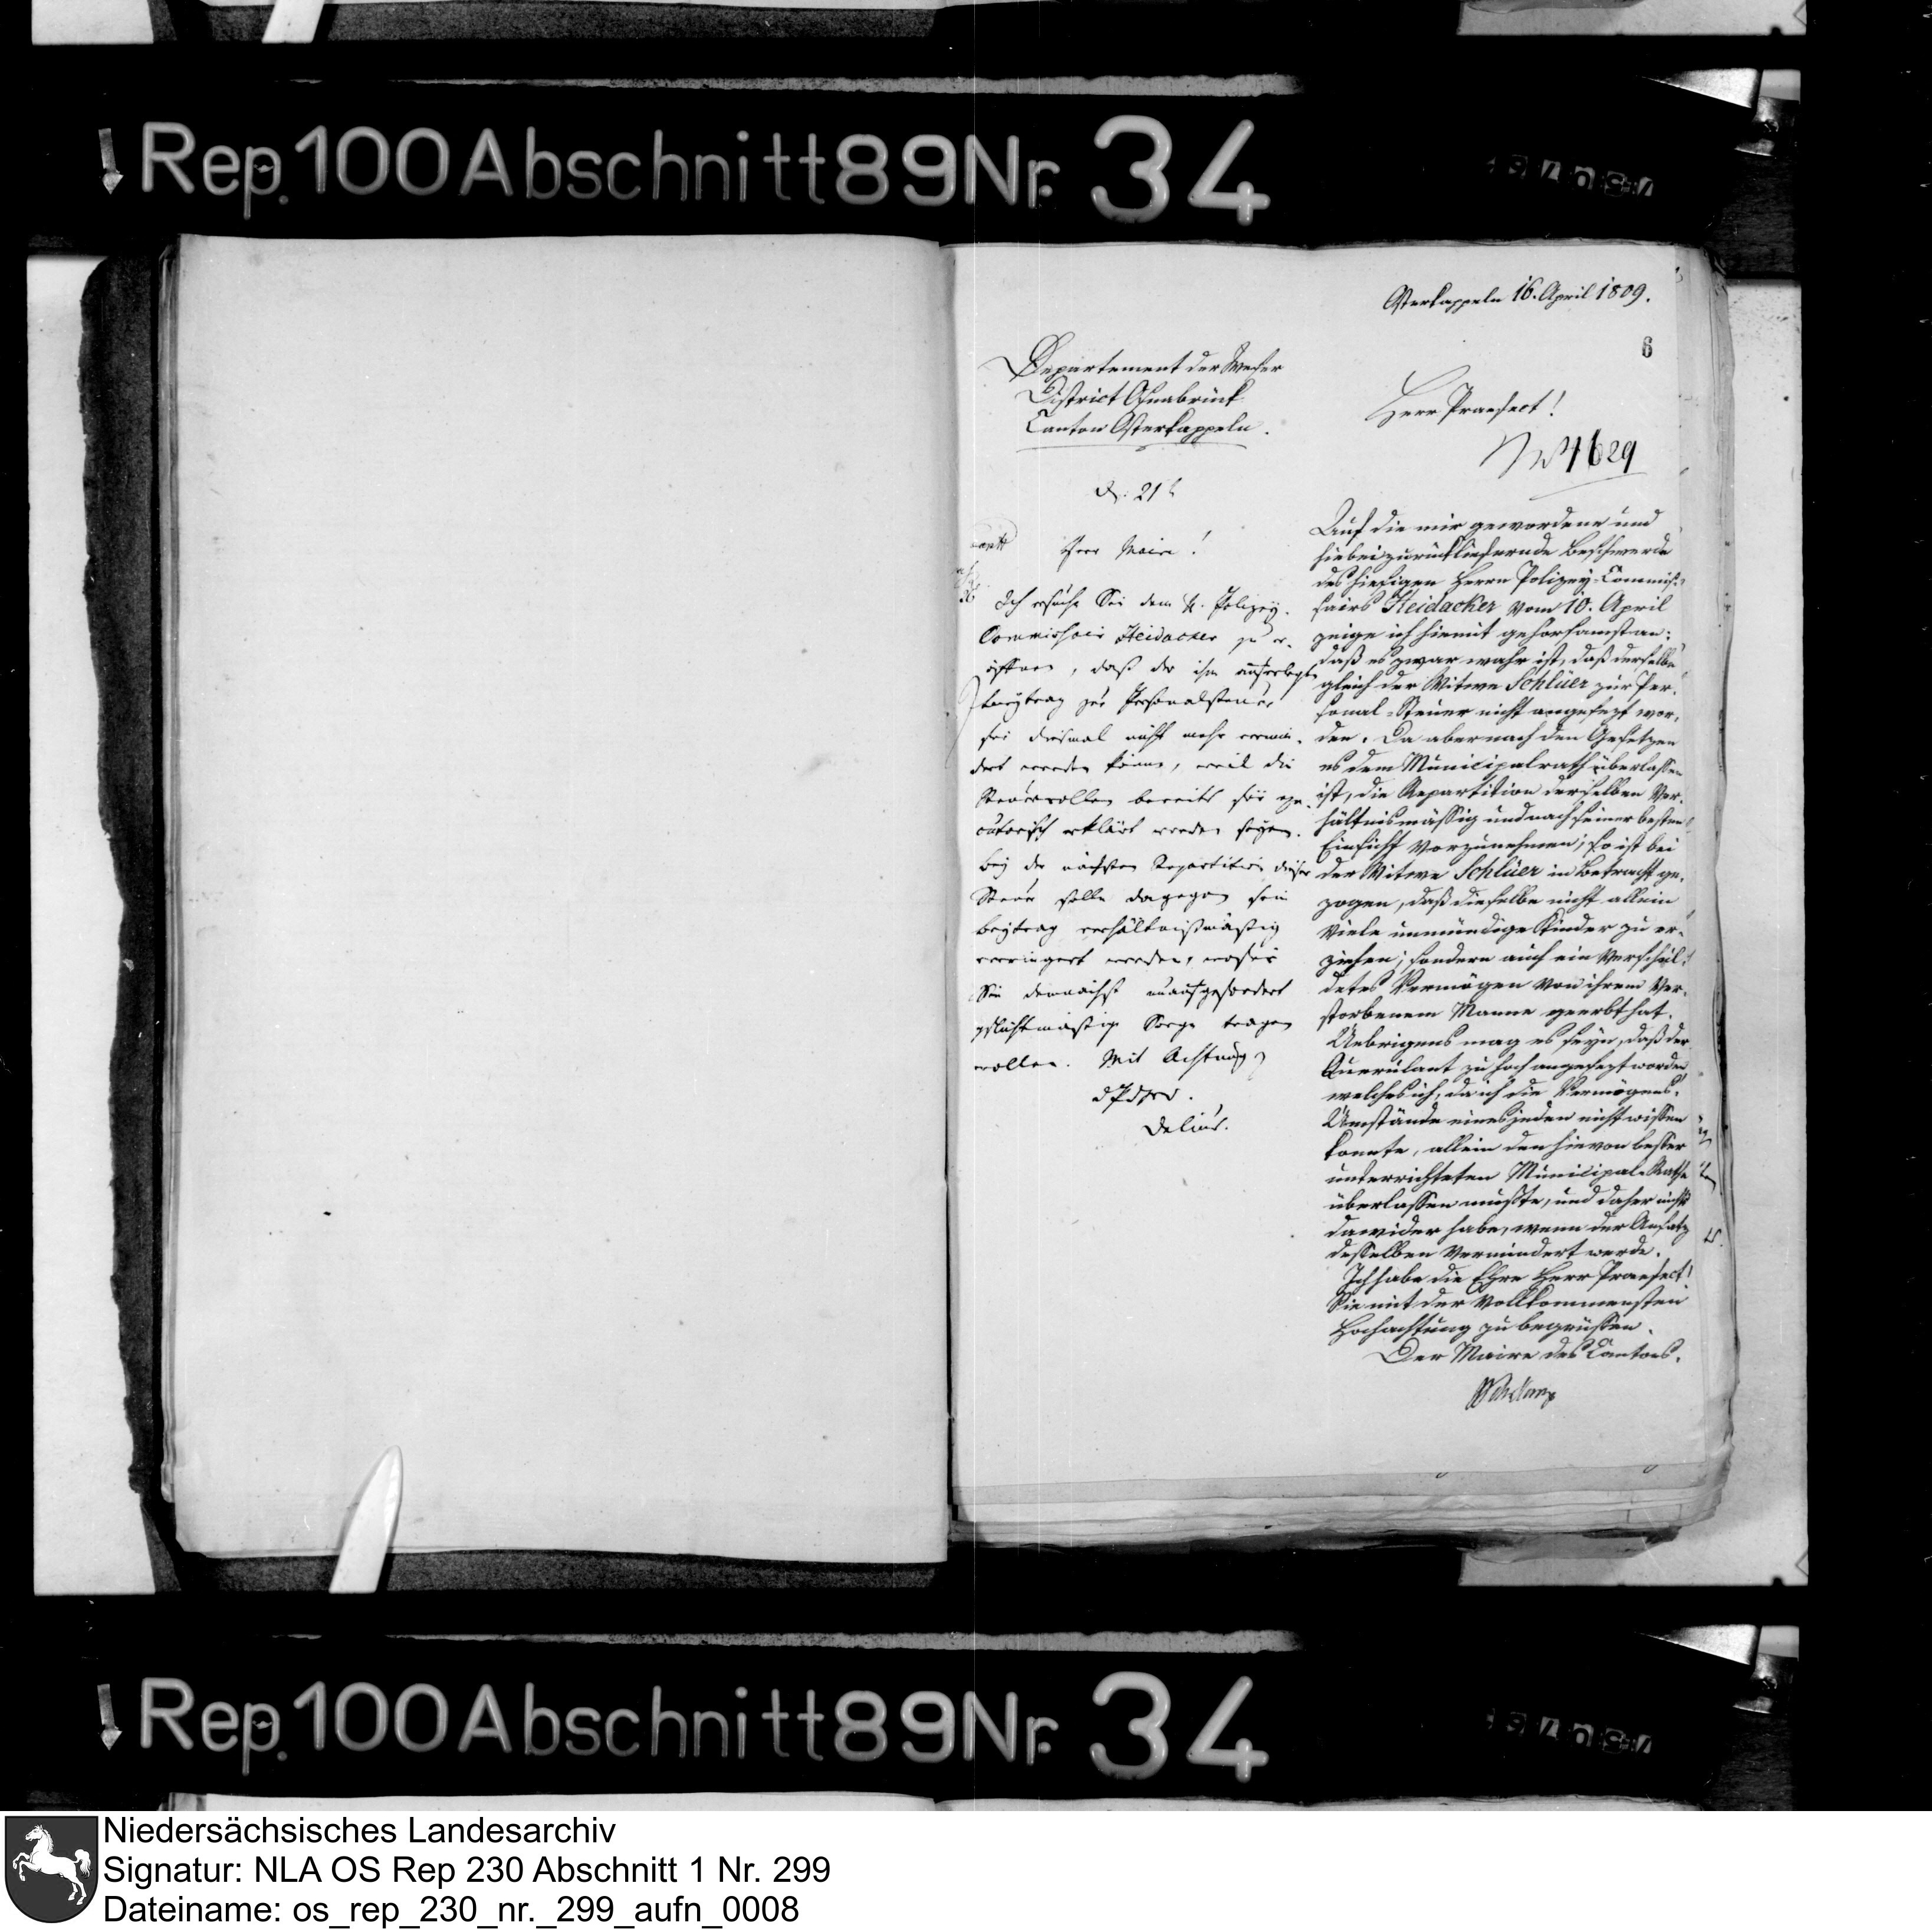 Rep. 100 Abschnitt 89 Nr. 34
Osterkappeln 16. April 1809.
6
Departement der Weser
District Osnabrück
Canton Osterkappeln.
Herr Praefect!
4629
21
Herr Maire!
Ich ersuche Sie dem H. Polizey-
Commissair Heidacker zu er-
öffnen, daß der ihm auferlegte
Beytrag zur Personalsteuer
für diesmal nicht mehr vermin-
dert werden könne, weil die
Steuerrollen bereits für exe-
cutorisch erklärt worden seyen.
Bey der nächsten Repartition dieser
Steuer solle dagegen sein
Beytrag verhältnißmäßig
verringert werden, wofür
Sie demnächst unaufgefordert
pflichtmäßige Sorge tragen
wollen. Mit Achtung
Delius.
Auf die mir gewordene und
hiebei zurückliefernde Beschwerde
des hiesigen Herrn Polizey-Commis-
sairs Heidacker vom 10. April
zeige ich hiemit gehorsamst an:
daß es zwar wahr ist, daß derselbe
gleich der Witwe Schlüer zur Per-
sonal-Steuer nicht angesezt wor-
den. Da aber nach den Gesetzen
es dem Municipalrath überlassen
ist, die Repartition derselben Ver-
hältnismässig und nach seiner besten
Einsicht vorzunehmen; so ist bei
der Witwe Schlüer in Betracht ge-
zogen, daß dieselbe nicht allein
viele unmündige Kinder zu er-
ziehen; sondern auch ein verschul-
detes Vermögen von ihrem ver-
storbenem Manne geerbt hat.
Uebrigens mag es seyn, daß der
Querulant zu hoch angesezt worden,
welches ich, da ich die Vermögens-
Umstände eines jeden nicht wissen
konnte, allein den hievon besser
unterrichteten Municipal-Rathe
überlassen mußte, und daher nichts
dawider habe, wenn der Ansatz
desselben vermindert werde.
Ich habe die Ehre Herr Praefect!
Sie mit der vollkommensten
Hochachtung zu begrüssen.
Der Maire des Cantons.
Rep. 100 Abschnitt 89 Nr. 34
Niedersächsisches Landesarchiv
Signatur: NLA OS Rep 230 Abschnitt 1 Nr. 299
Dateiname: os_rep_230_nr._299_aufn_0008